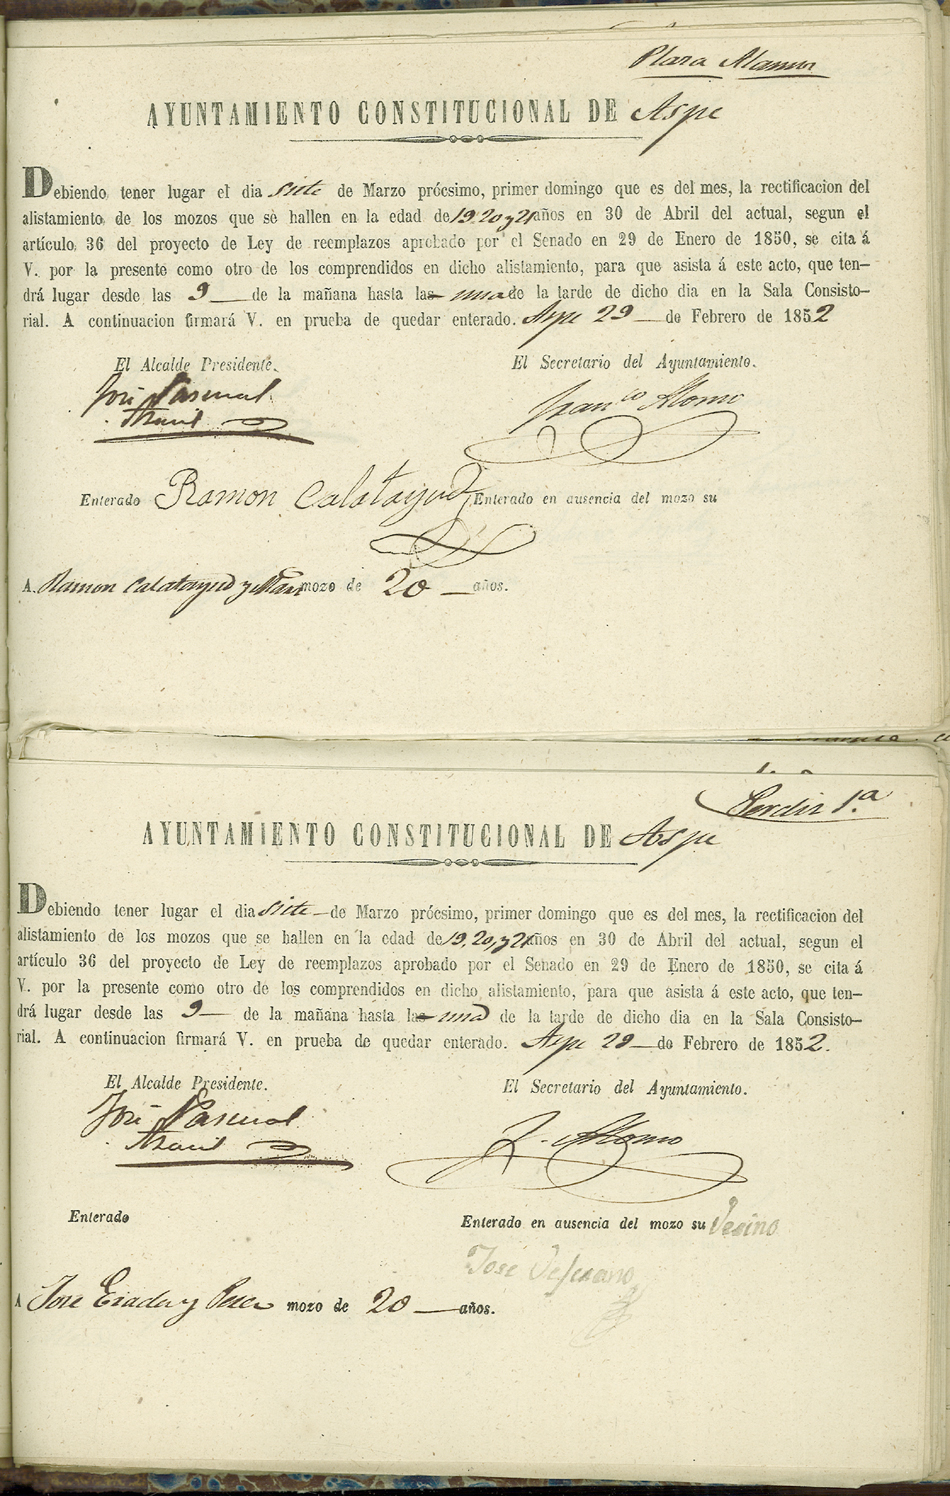 Plaza Alamo
AYUNTAMIENTO CONSTITUCIONAL DE Aspe
Debiendo tener lugar el dia siete de Marzo prócsimo, primer domingo que es del mes, la rectificacion del
alistamiento de los mozos que se hallen en la edad de 19, 20 y 21 años en 30 de Abril del actual, segun el
artículo 36 del proyecto de Ley de reemplazos aprobado por el Senado en 29 de Enero de 1850, se cita á
V. por la presente como otro de los comprendidos en dicho alistamiento, para que asista á este acto, que ten-
drá lugar desde las 9 de la mañana hasta la una de la tarde de dicho dia en la Sala Consisto-
rial. A continuacion firmará V. en prueba de quedar enterado. Aspe 29 de Febrero de 1852
El Alcalde Presidente. El Secretario del Ayuntamiento.
José Pascual Franco Alonso
Enterado Ramon Calatayud Enterado en ausencia del mozo su
A Ramon Calatayud y mozo de 20 años.
1.a
AYUNTAMIENTO CONSTITUCIONAL DE Aspe
Debiendo tener lugar el dia siete de Marzo prócsimo, primer domingo que es del mes, la rectificacion del
alistamiento de los mozos que se hallen en la edad de 19, 20, y 21 años en 30 de Abril del actual, segun el
artículo 36 del proyecto de Ley de reemplazos aprobado por el Senado en 29 de Enero de 1850, se cita á
V. por la presente como otro de los comprendidos en dicho alistamiento, para que asista á este acto, que ten-
drá lugar desde las 9 de la mañana hasta la una de la tarde de dicho dia en la Sala Consisto-
rial. A continuacion firmará V. en prueba de quedar enterado. Aspe 29 de Febrero de 1852.
El Alcalde Presidente. El Secretario del Ayuntamiento.
José Pascual F. Alonso
Enterado Enterado en ausencia del mozo su Vecino
José
A Jose y mozo de 20 años.